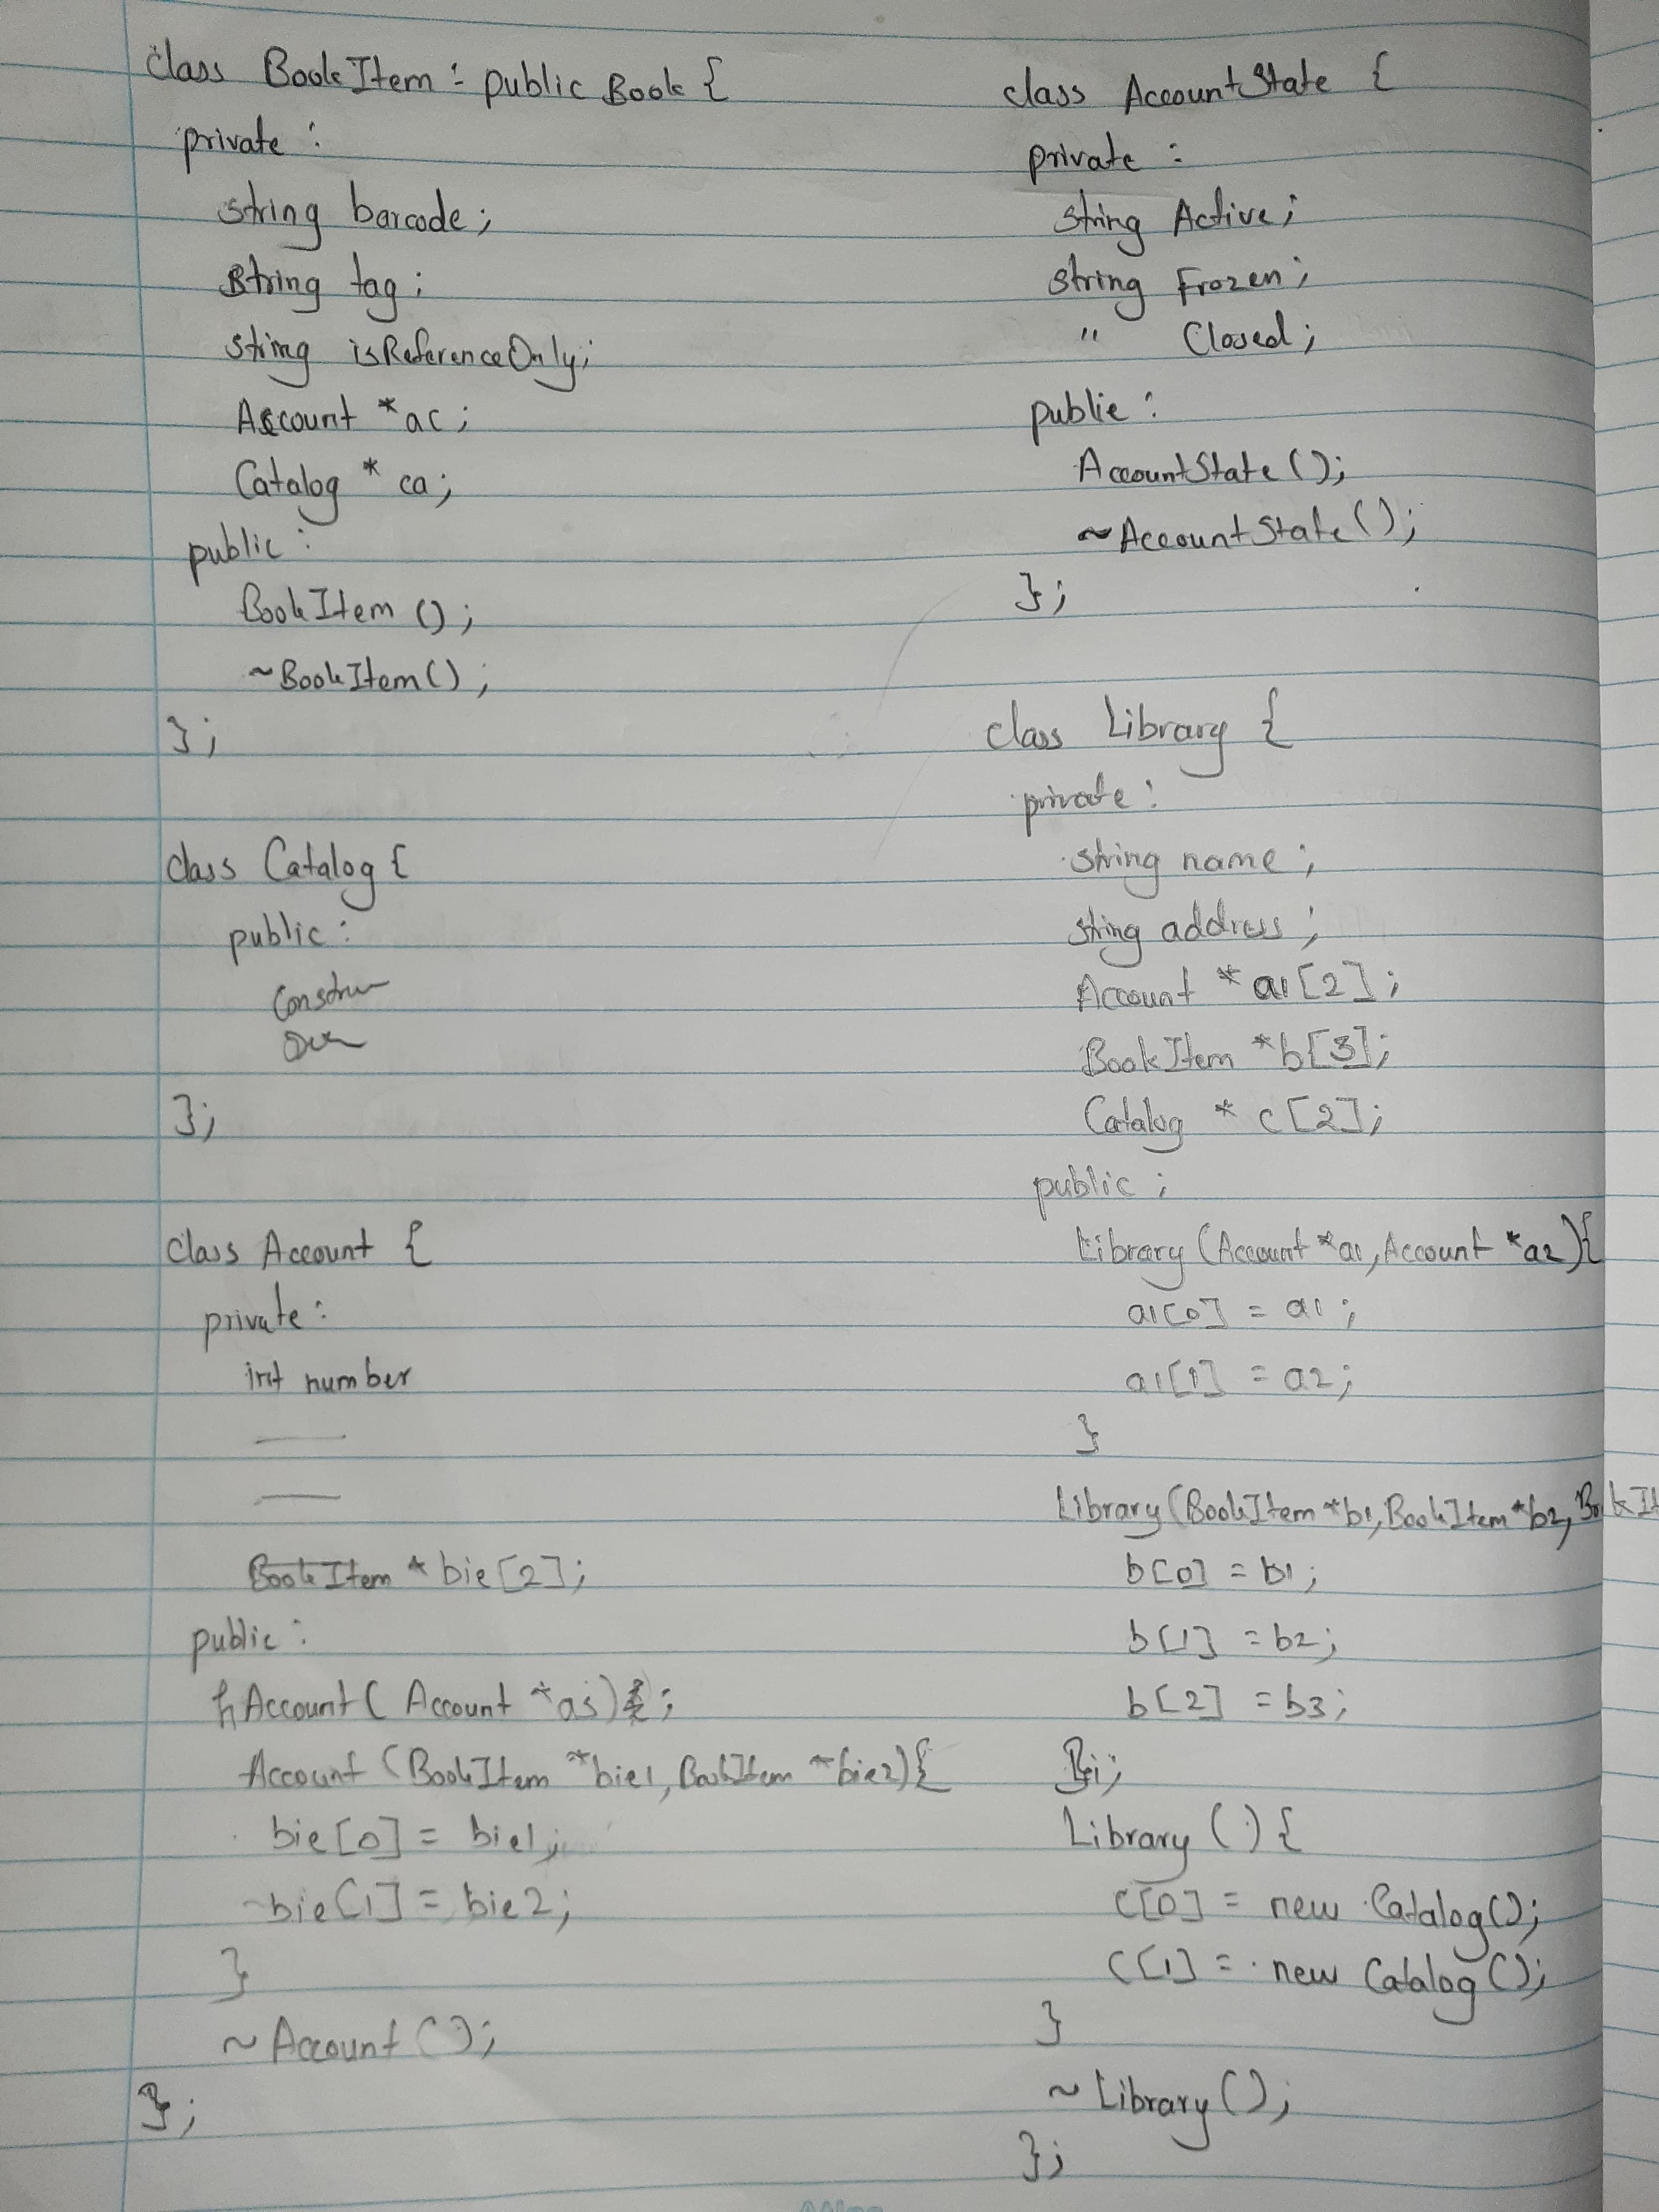 class BookItem : public Book {
private :
string barcode;
string tag;
string isReferenceOnly;
Account *ac;
Catalog * ca;
public :
BookItem ();
~BookItem();
};
class Catalog {
public :
Constru
};
class Account {
private :
int number
BookItem * bie[2];
public :
Account ( Account *as) ;
Account (BookItem *bie1, BookItem *bie2){
bie[0] = bie1;
bie[1] = bie2;
}
~ Account ();
};
class AccountState {
private :
string Active;
string Frozen;
" Closed;
public :
AccountState ();
~AccountState ();
};
class Library {
private :
string name ;
string address ;
Account * a1[2];
BookItem *b[3];
Catalog * c[2];
public ;
Library (Account *a1, Account *a2){
a1[0] = a1 ;
a1[1] = a2;
}
Library (BookItem *b1, BookItem *b2, BookIt
b[0] = b1;
b[1] = b2;
b[2] = b3;
};
Library () {
c[0] = new Catalog();
c[1] = new Catalog ();
}
~ Library ();
};